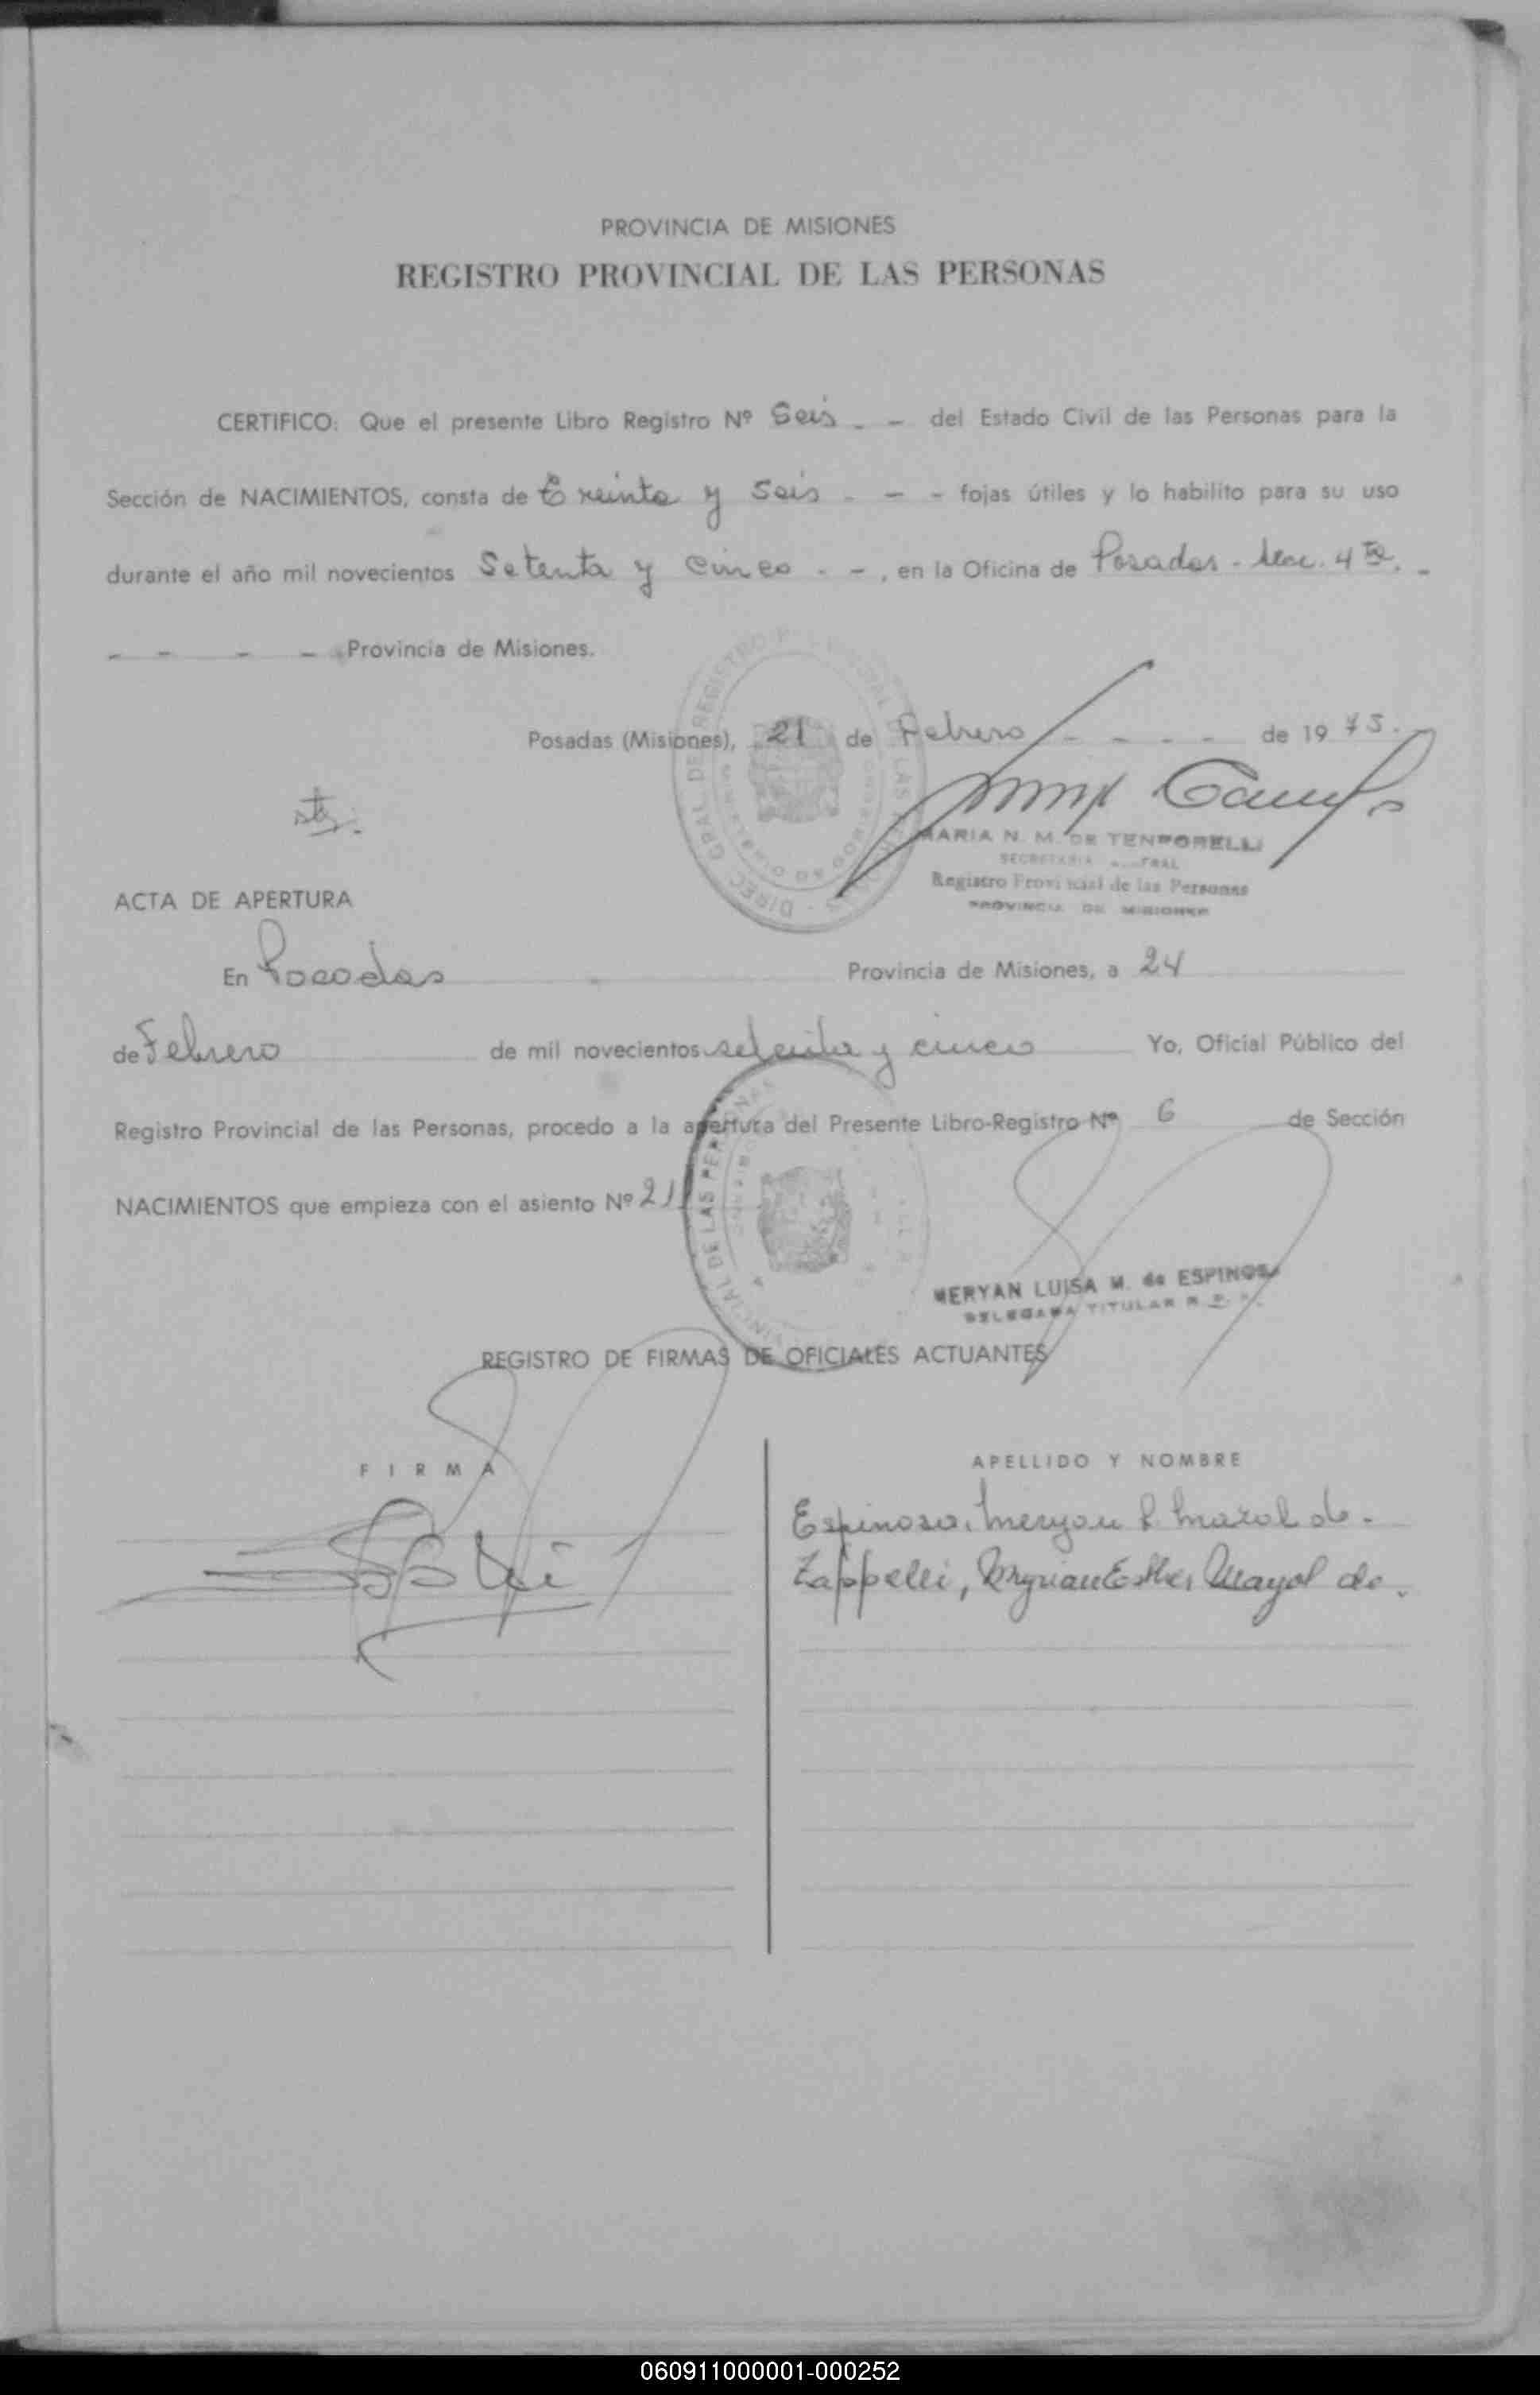 PROVINCIA DE MISIONES
REGISTRO PROVINCIAL DE LAS PERSONAS
CERTIFICO: Que el presente Libro Registro Nº Seis - - del Estado Civil de las Personas para la
Sección de NACIMIENTOS, consta de Treinta y Seis - - - fojas útiles y lo habilito para su uso
durante el año mil novecientos Setenta y cinco - -, en la Oficina de Posadas - Sec. 4ta. -
- - - - Provincia de Misiones.
Posadas (Misiones), 21 de Febrero - - - - de 1975.
MARIA N. M. DE TEMPORELLI
Registro Provincial de las Personas
PROVINCIA DE MISIONES
ACTA DE APERTURA
En Posadas Provincia de Misiones, a 24
de Febrero de mil novecientos setenta y cinco Yo, Oficial Público del
Registro Provincial de las Personas, procedo a la apertura del Presente Libro-Registro Nº 6 de Sección
NACIMIENTOS que empieza con el asiento Nº
MERYAN LUISA M. de ESPINOSA
DELEGADA TITULAR R. P.
REGISTRO DE FIRMAS DE OFICIALES ACTUANTES
FIRMA
APELLIDO Y NOMBRE
Espinosa, Meryan L. de.
Zappelli, Myrian Esther Mayol de.
060911000001-000252